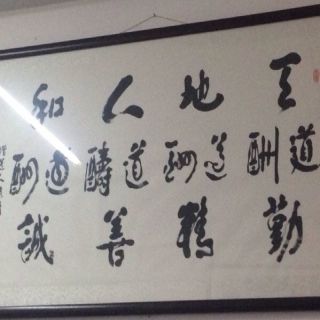 天道酬勤
地道酬精
人道酬善
和道酬誠